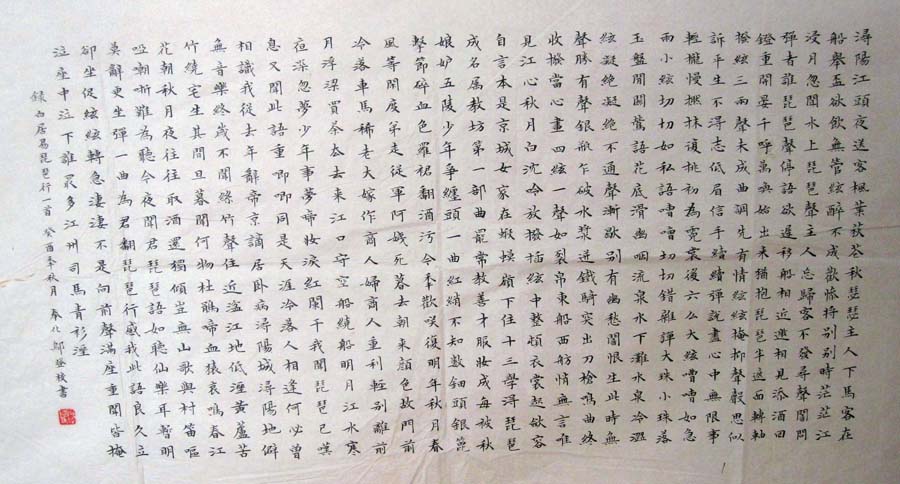 潯陽江頭夜送客楓葉荻花秋瑟瑟主人下馬客在
船舉盃欲飲無管絃醉不成歡慘將別別時茫茫江
浸月忽聞水上琵琶聲主人忘歸客不發尋聲闇問
彈者誰琵琶聲停語欲遲移船相近邀相見添酒回
鐙重開宴千呼萬喚始出來猶抱琵琶半遮面轉軸
撥絃三兩聲未成曲調先有情絃絃掩抑聲聲思似
訴平生不得志低眉信手續續彈說盡心中無限事
輕攏慢撚抹復挑初為霓裳後六么大絃嘈嘈如急
雨小絃切切如私語嘈嘈切切錯雜彈大珠小珠落
玉盤間關鶯語花底滑幽咽流泉水下灘水泉冷澀
絃凝絕凝絕不通聲漸歇別有幽愁闇恨生此時無
聲勝有聲銀瓶乍破水漿迸鐵騎突出刀槍鳴曲終
收撥當心畫四絃一聲如裂帛東船西舫悄無言唯
見江心秋月白沈吟放撥插絃中整頓衣裳起斂容
自言本是京城女家在蝦蟆陵下住十三學得琵琶
成名屬教坊第一部曲罷常教善才服妝成每被秋
娘妒五陵少年爭纏頭一曲紅綃不知數鈿頭銀篦
擊節碎血色羅裙翻酒污今年歡笑復明年秋月春
風等閑度弟走從軍阿姨死暮去朝來顏色故門前
冷落車馬稀老大嫁作商人婦商人重利輕別離前
月浮梁買茶去去來江口守空船繞船明月江水寒
夜深忽夢少年事夢啼妝淚紅闌干我聞琵琶已嘆
息又聞此語重唧唧同是天涯淪落人相逢何必曾
相識我從去年辭帝京謫居臥病潯陽城潯陽地僻
無音樂終歲不聞絲竹聲住近湓江地低溼黃蘆苦
竹繞宅生其間旦暮聞何物杜鵑啼血猿哀鳴春江
花朝秋月夜往往取酒還獨傾豈無山歌與村笛
啞嘲哳難為聽今夜聞君琵琶語如聽仙樂耳暫明
莫辭更坐彈一曲為君翻琵琶行感我此語良久立
卻坐促絃絃轉急淒淒不是向前聲滿座重聞皆掩
泣座中泣下誰最多江州司馬青衫溼
錄白居易琵琶行一首 癸酉年秋月 奉化